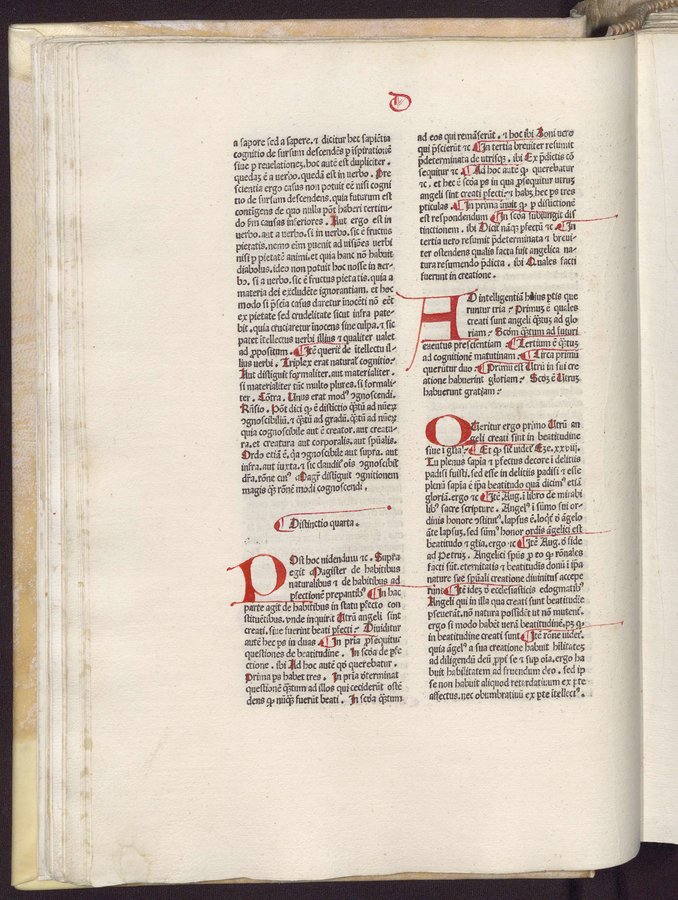 D
a sapore sed a sapere. ⁊ dicitur hec sapiētia
cognitio de sursum descendēs p īspirationē
siue p reuelationez. hoc autē est dupliciter.
quedaz ē a uerbo. quedā est in uerbo. Pre
scientia ergo casus non potuit eē nisi cogni
tio de sursum descendens. quia futurum est
contigens de quo nulla pōt haberi certitu-
do ꝑm causas inferiores. Aut ergo est in
uerbo. aut a uerbo. si in uerbo. sic ē fructus
pietatis. nemo eīm puenit ad uisiōes uerbi
nisi p pietatē animi. et quia hanc nō habuit
diabolus. ideo non potuit hoc nosse in uer-
bo. si a uerbo. sic ē fructus pietatis. quia a
materia dei excludēte ignorantiam. et hoc
modo si p̄scīa casus daretur inocēti nō eēt
ex pietate sed crudelitate sicut infra pate-
bit. quia cruciaretur inocens sine culpa. ⁊ sic
patet ītellectus uerbi illius ⁊ qualiter ualet
ad ꝓpositum. ¶Itē querit̄ de itellectu il-
lius uerbi. Triplex erat natural' cognitio.
Aut distiguit formaliter. aut materialiter.
si materialiter tūc multo plures. si formali-
ter. Cōtra. Unus erat modꝰ ꝯgnoscendi.
Rn̄sio. Pōt dici ꝙ ē distictio qͥtū ad nūeꝝ
ꝯgnoscibiliū. ⁊ qͥtū ad gradū. qͥtū ad nūeꝝ
quia cognoscibile aut ē creator. aut creatu-
ra. et creatura aut corporalis. aut spūalis.
Ordo etiā ē. qa ꝯgnoscibile aut supra. aut
infra. aut iuxta. ⁊ sic claudit̄ oīs ꝯgnoscibił
dr̄a. rōne cuiꝰ Magr̄ distiguit ꝯgnitionem
magis qͣꝫ rōnē modi cognoscendi.
¶Distinctio quarta.
POst hoc uidendum ⁊c. Supra
egit Magister de habitibus
naturalibus ⁊ de habitibus ad
pfectionē preparantibꝰ ¶In hac
parte agit de habitibus in statu pfecto con
stituētibus. vnde inquirit Utrū angeli sint
creati. siue fuerint beati pfecti: Diuiditur
autē hec ps in duas ¶In pria psequitur
questiones de beatitudine. In scōa de pfe
ctione. ibi Ad hoc autē qō querebatur.
Prima ps habet tres. In pria determinat
questionē qͥtum ad illos qui ceciderūt ostē
dens ꝙ nūqͣꝫ fuerūt beati. In scōa qͥtum
ad eos qui remāserūt. ⁊ hoc ibi Boni uero
qui pscierūt ⁊c ¶In tertia breuiter resumit
p̄determinata de utrisqꝫ. ibi Ex p̄dictis cō
sequitur ⁊c ¶Ad hoc autē ꝙ querebatur
⁊c. et hec ē scōa ps in qua psequitur utruꝫ
angeli sint creati pfecti: ⁊ habꝫ hec ps tres
pticulas ¶In prima inuit ꝙ p distictionē
est respondendum ¶In scōa subiungit dis
tinctionem. ibi Dicit' nāqꝫ pfectū ⁊c ¶In
tertia uero resumit p̄determinata ⁊ breui-
ter ostendens qualis facta fuit angelica na-
tura resumendo p̄dicta. ibi Quales facti
fuerunt in creatione.
AD intelligentiā huius ptis que
runtur tria: Primuꝫ ē quales
creati sunt angeli qͥtuꝫ ad glo
riam: Scōm qͥtum ad futuri
euentus prescientiam: Tertium ē qͥtuꝫ
ad cognitionē matutinam. ¶Circa primū
querūtur duo. ¶Primū est Utrū in sui cre
atione habuerint gloriam: Scōꝫ ē Utrūꝫ
habuerunt gratiam:
QUeritur ergo primo Utrū an
geli creati sint in beatitudine
siue ī glīa: ¶Et ꝙ sic uidet̄ Eze. xxviij.
Tu plenus sapīa ⁊ pfectus decore ī deliciis
padisi fuisti. sed esse in delitiis padisi ⁊ esse
plenū sapīa ē ipā beatitudo quā dicimꝰ etiā
gloriā. ergo ⁊c ¶Itē Aug. ī libro de mirabi
libꝰ sacre scripture. Angelꝰ ī sūmo sui or-
dinis honore ꝯstitutꝰ. lapsus ē. loqͥt̄ ō āgelo
āte lapsuꝫ. sed sūmꝰ honor ordis āgelici est
beatitudo ⁊ glīa. ergo ⁊c ¶Itē Aug. ō fide
ad Petruꝫ. Angelici spūs ꝓ eo ꝙ rōnales
facti sūt. eternitatis ⁊ beatitudis donū ī ipa
nature sue spūali creatione diuinitus accepe
runt ¶Itē ideꝫ ō ecclesiasticis dogmatibꝰ
Angeli qui in illa qua creati sunt beatitudīe
pseuerāt. nō natura possidēt ut nō mutent̄.
ergo si modo habēt uerā beatitudinē. pꝫ ꝙ
in beatitudine creati sunt ¶Itē rōne uidet̄.
quia āgelꝰ a sua creatione habuit hilitateꝫ
ad diligendū deū ꝓpt̄ se ⁊ sup oīa. ergo ha
buit habilitatem ad fruendum deo. sed ip
se non habuit aliquod retardatiuum ex pte
affectus. nec obumbratiuū ex pte itellectꝰ.